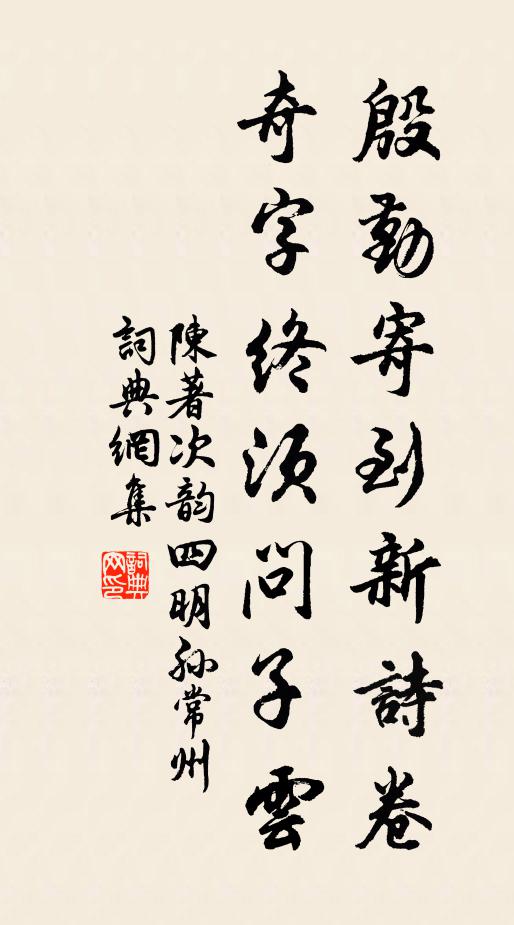 殷勤寄到新詩卷
奇字終須問子雲
陳著次韵四明孙常州
詞典網集
詞典
网印